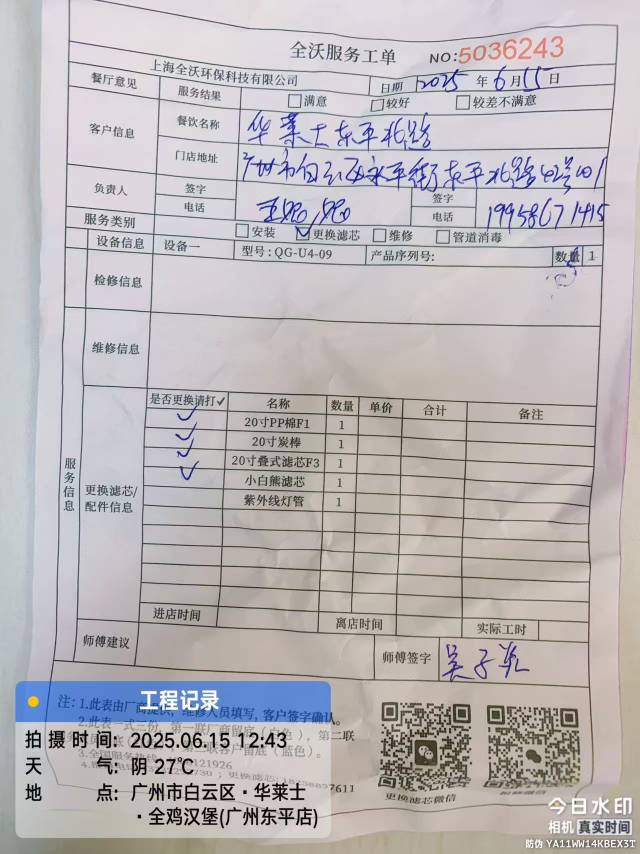 全沃服务工单 NO:5036243
上海全沃环保科技有限公司 日期 2025 年 6 月 15 日
餐厅意见 服务结果 满意 较好 较差不满意
客户信息 餐饮名称 华莱士东平北路
门店地址 广州市白云区永平街东平北路42号101
负责人 签字 签字
电话 电话 19958671415
服务类别 安装 更换滤芯 维修 管道消毒
设备信息 设备一 型号: QG-U4-09 产品序列号: 数量 1
检修信息
维修信息
服务信息
更换滤芯/配件信息
是否更换请打✓ 名称 数量 单价 合计 备注
✓ 20寸PP棉F1 1
✓ 20寸炭棒 1
✓ 20寸叠式滤芯F3 1
✓ 小白熊滤芯 1
紫外线灯管 1
进店时间 离店时间 实际工时
师傅建议 师傅签字
注: 1.此表由厂商提供，维修人员填写，客户签字确认。
工程记录
拍摄时间: 2025.06.15 12:43
天气: 阴 27℃
地点: 广州市白云区·华莱士
·全鸡汉堡(广州东平店)
更换滤芯微信
今日水印
相机 真实时间
防伪 YA11WW14KBEX3T